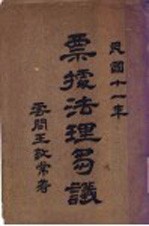 民國十一年
票據法理芻議
雲間王敦常著